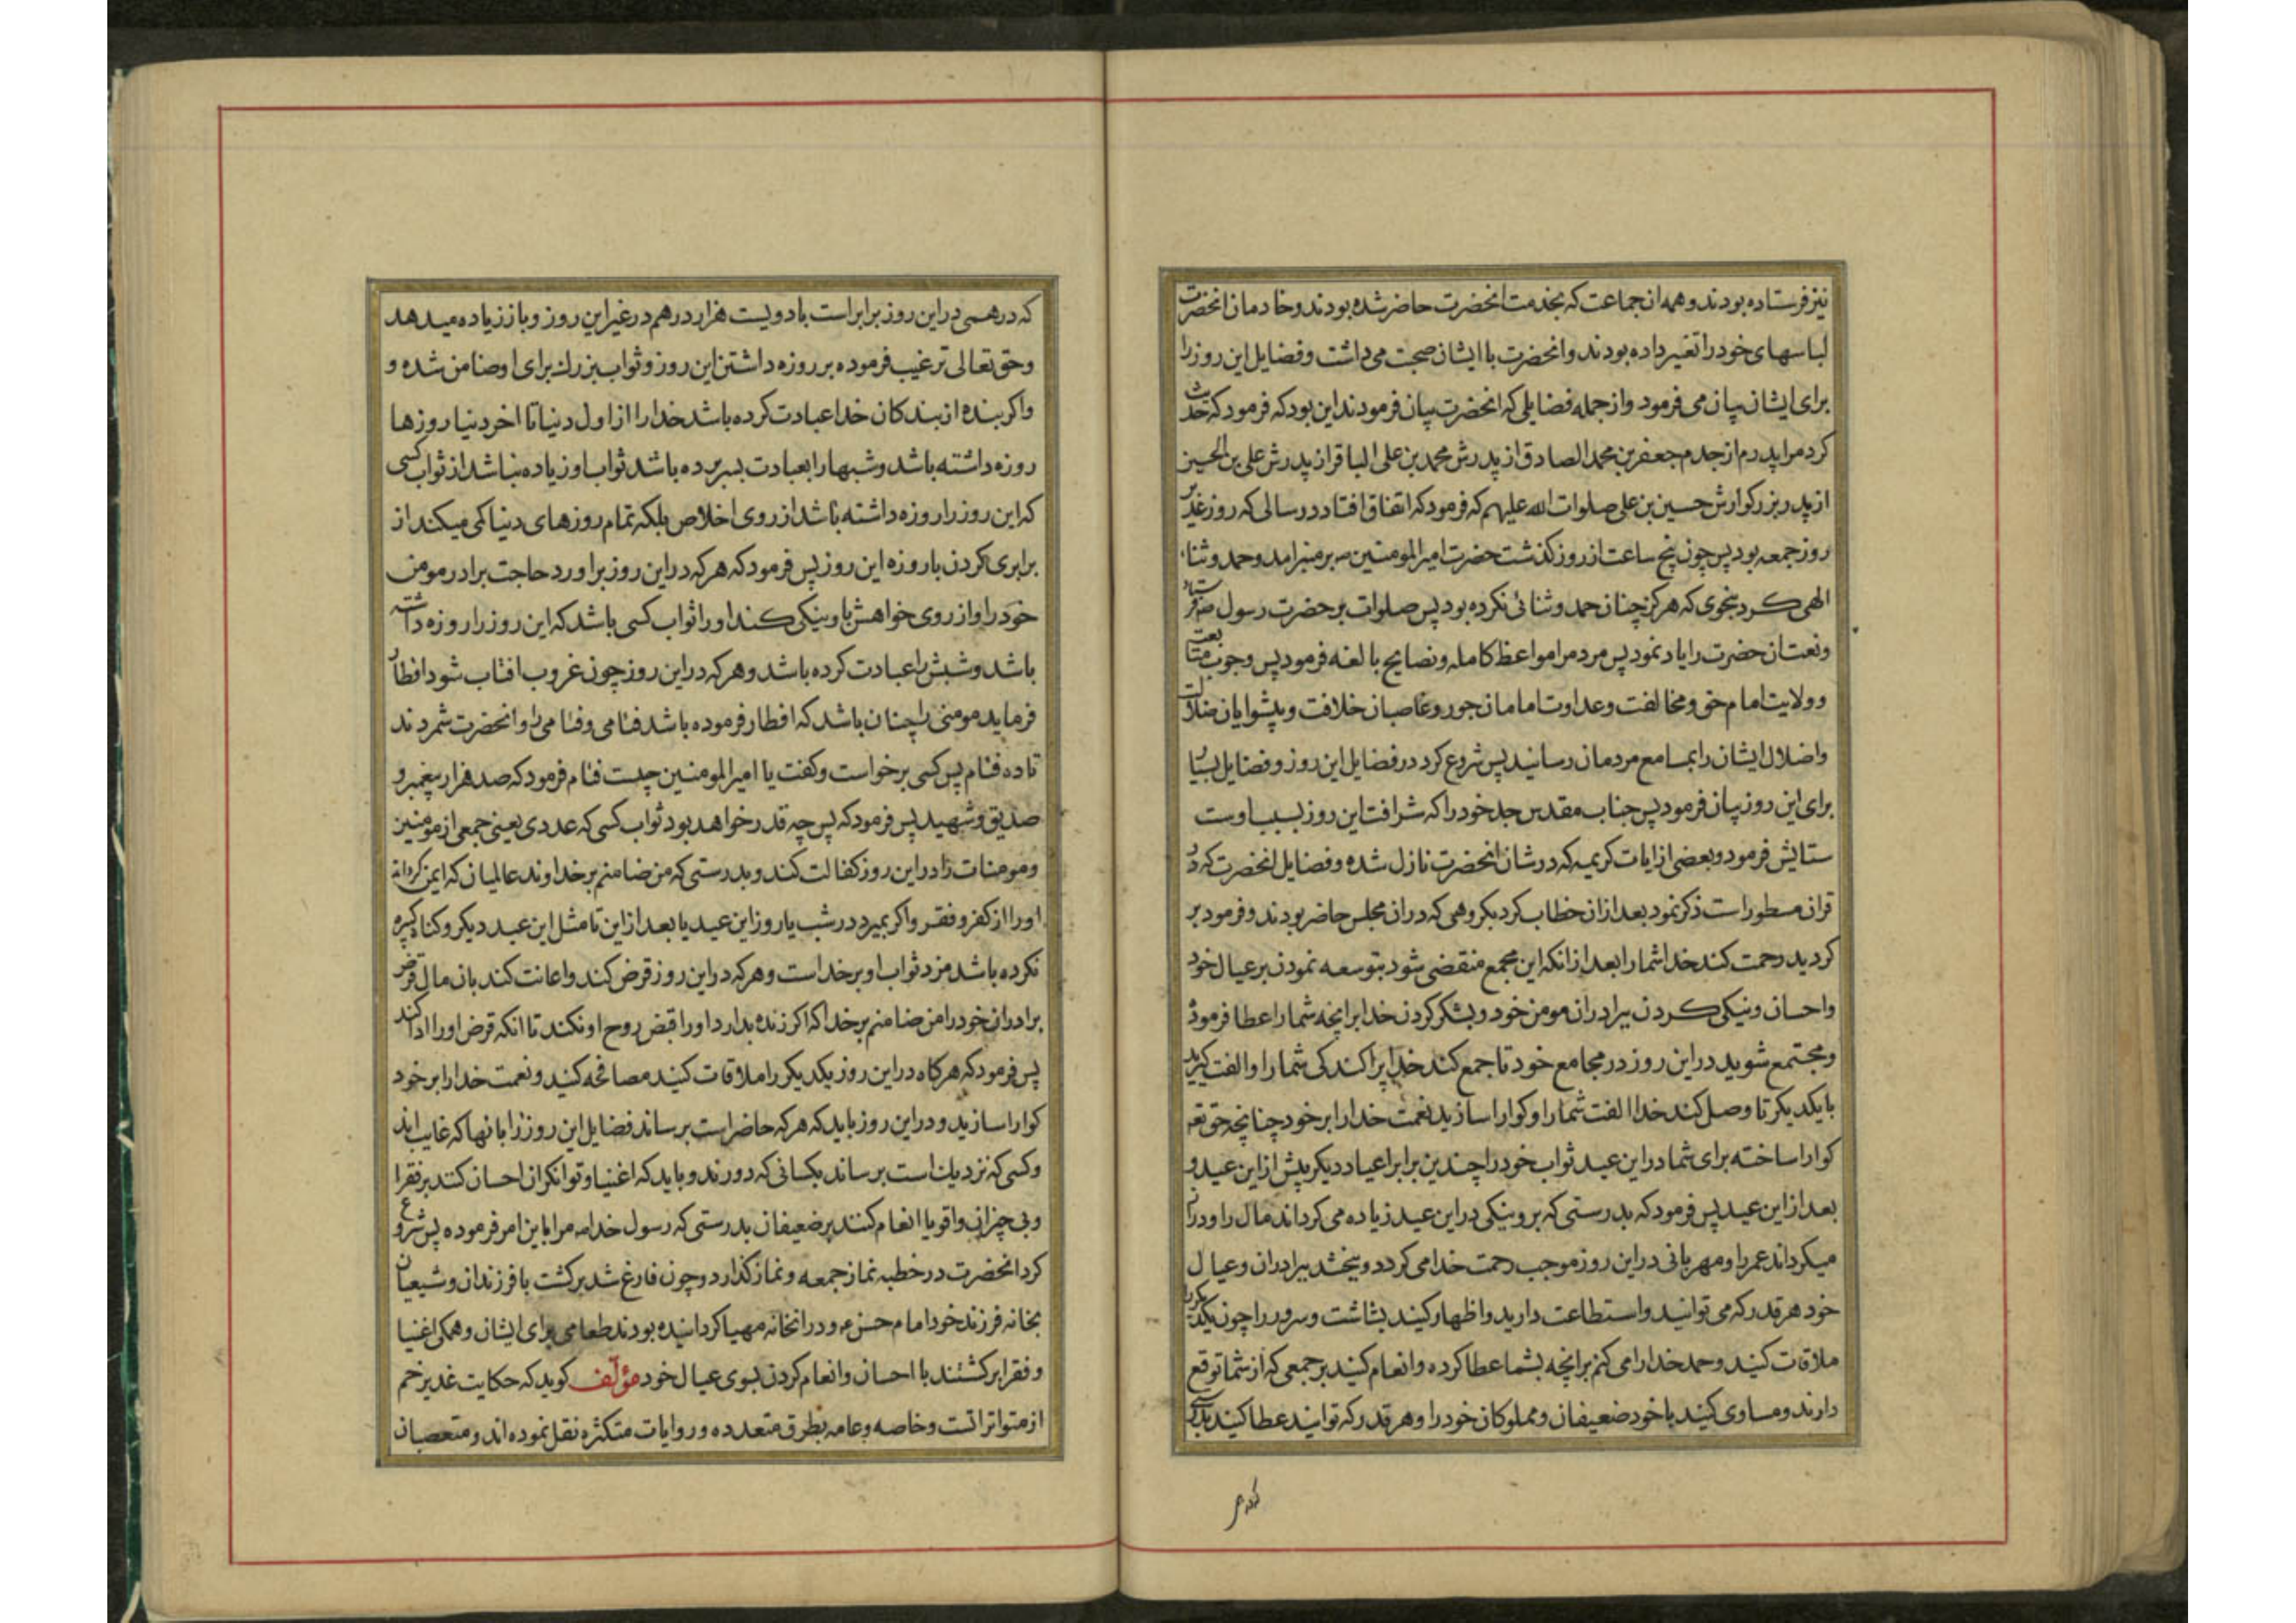 نیز فرستاده بودند و همه ان جماعت که بخدمت انحضرت حاضر شده بودند و خادمان انحضرت
لباسهای خود را تغیر داده بودند و انحضرت با ایشان صحبت می داشت و فضایل این روز را
برای ایشان بیان می فرمود و از جمله فضایلی که انحضرت بیان فرمودند این بود که فرمود که حدیث
کرد مرا پدرم از جدم جعفر بن محمد الصادق از پدرش محمد بن علی الباقر از پدرش علی بن الحسین
از پدر بزرکوارش حسین بن علی صلوات الله علیهم که فرمود که اتفاق افتاد در سالی که روز غدیر
روز جمعه بود پس چون پنج ساعت از روز کذشت حضرت امیر المومنین ص بر منبر امد و حمد و ثناء
الهی کرد بنحوی که هرکز چنان حمد و ثنائی نکرده بود پس صلوات بر حضرت رسول ص فرستاد
و نعت ان حضرت را یاد نمود پس مردم را مواعظ کامله و نصایح بالغه فرمود پس وجوب متابعت
و ولایت امام حق و مخالفت و عداوت امامان جور و غاصبان خلافت و پیشوایان ضلالت
واضلال ایشان را بمسامع مردمان رسانید پس شروع کرد در فضایل این روز و فضایل بسیار
برای این روز بیان فرمود پس جناب مقدس جد خود را که شرافت این روز بسبب اوست
ستایش فرمود و بعضی از ایات کریمه که در شان انحضرت نازل شده و فضایل انحضرت که در
قران مسطور است ذکر نمود بعد از ان خطاب کرد بکروهی که در ان مجلس حاضر بودند و فرمود بر
کردید رحمت کند خدا شما را بعد از انکه این مجمع منقضی شود بتوسعه نمودن بر عیال خود
و احسان و نیکی کردن ببرادران مومن خود و بشکر کردن خدا بر انچه شما را عطا فرموده
و مجتمع شوید در این روز در مجامع خود تا جمع کند خدا پراکندکی شما را و الفت کیرید
با یکدیکر تا وصل کند خدا الفت شما را و کوارا سازید نعمت خدا را بر خود چنانچه حق تعه
کوارا ساخته برای شما در این عید ثواب خود را چندین برابر اعیاد دیکر پیش از این عید و
بعد از این عید پس فرمود که بدرستی که بر و نیکی در این عید زیاده می کرداند مال را و دراز
میکرداند عمر را و مهربانی در این روز موجب رحمت خدا می کردد و ببخشد ببرادران و عیال
خود هر قدر که می توانید و استطاعت دارید و اظهار کنید بشاشت و سرور را چون یکدیکر را
ملاقات کنید و حمد خدا را می کنم بر انچه بشما عطا کرده و انعام کنید بر جمعی که از شما توقع
دارند و مساوی کنید با خود ضعیفان و مملوکان خود را و هر قدر که توانید عطا کنید بدرستی
که درهمی
که درهمی در این روز برابر است با دویست هزار درهم در غیر این روز و باز زیاده میدهد
و حق تعالی ترغیب فرموده بر روزه داشتن این روز و ثواب بزرك برای او ضامن شده و
و اکر بنده از بندکان خدا عبادت کرده باشد خدا را از اول دنیا تا اخر دنیا روزها
روزه داشته باشد و شبها را بعبادت بسر برده باشد ثواب او زیاده نباشد از ثواب کسی
که این روز را روزه داشته باشد از روی اخلاص بلکه تمام روزهای دنیا کمی میکند از
برابری کردن با روزه این روز پس فرمود که هر که در این روز براورد حاجت برادر مومن
خود را و از روی خواهش باو نیکی کند او را ثواب کسی باشد که این روز را روزه داشته
باشد و شبش را عبادت کرده باشد و هر که در این روز چون غروب افتاب شود افطار
فرماید مومنی را چنان باشد که افطار فرموده باشد فئامی و فئامی را و انحضرت شمردند
تا ده فئام پس کسی برخواست و کفت یا امیر المومنین چیست فئام فرمود که صد هزار پیغمبر و
صدیق و شهید پس فرمود که پس چه قدر خواهد بود ثواب کسی که عددی یعنی جمعی از مومنین
و مومنات را در این روز کفالت کند و بدرستی که من ضامنم بر خداوند عالمیان که ایمن کرداند
او را از کفر و فقر و اکر بمیرد در شب یا روز این عید یا بعد از این تا مثل این عید دیکر و کناه کبیره
نکرده باشد مزد ثواب او بر خداست و هر که در این روز قرض کند و اعانت کند بان مال قرض
برادران خود را من ضامنم بر خدا که اکر زنده بدارد او را قبض روح او نکند تا انکه قرض او را ادا کند
پس فرمود که هرکاه در این روز یکدیکر را ملاقات کنید مصافحه کنید و نعمت خدا را بر خود
کوارا سازید و در این روز باید که هر که حاضر است برساند فضایل این روز را بانها که غایب اند
و کسی که نزدیك است برساند بکسانی که دورند و باید که اغنیا و توانکران احسان کنند بر فقرا
و بی چیزان و اقویا انعام کنند بر ضعیفان بدرستی که رسول خدا ص مرا باین امر فرموده پس شروع
کرد انحضرت در خطبه نماز جمعه و نماز کذارد و چون فارغ شد برکشت با فرزندان و شیعیان
بخانه فرزند خود امام حسن ع و در انخانه مهیا کردانیده بودند طعامی برای ایشان و همکی اغنیا
و فقرا برکشتند با احسان و انعام کردن بسوی عیال خود مؤلف کوید که حکایت غدیر خم
از متواترا تست و خاصه و عامه بطرق متعدده و روایات متکثره نقل نموده اند و متعصبان